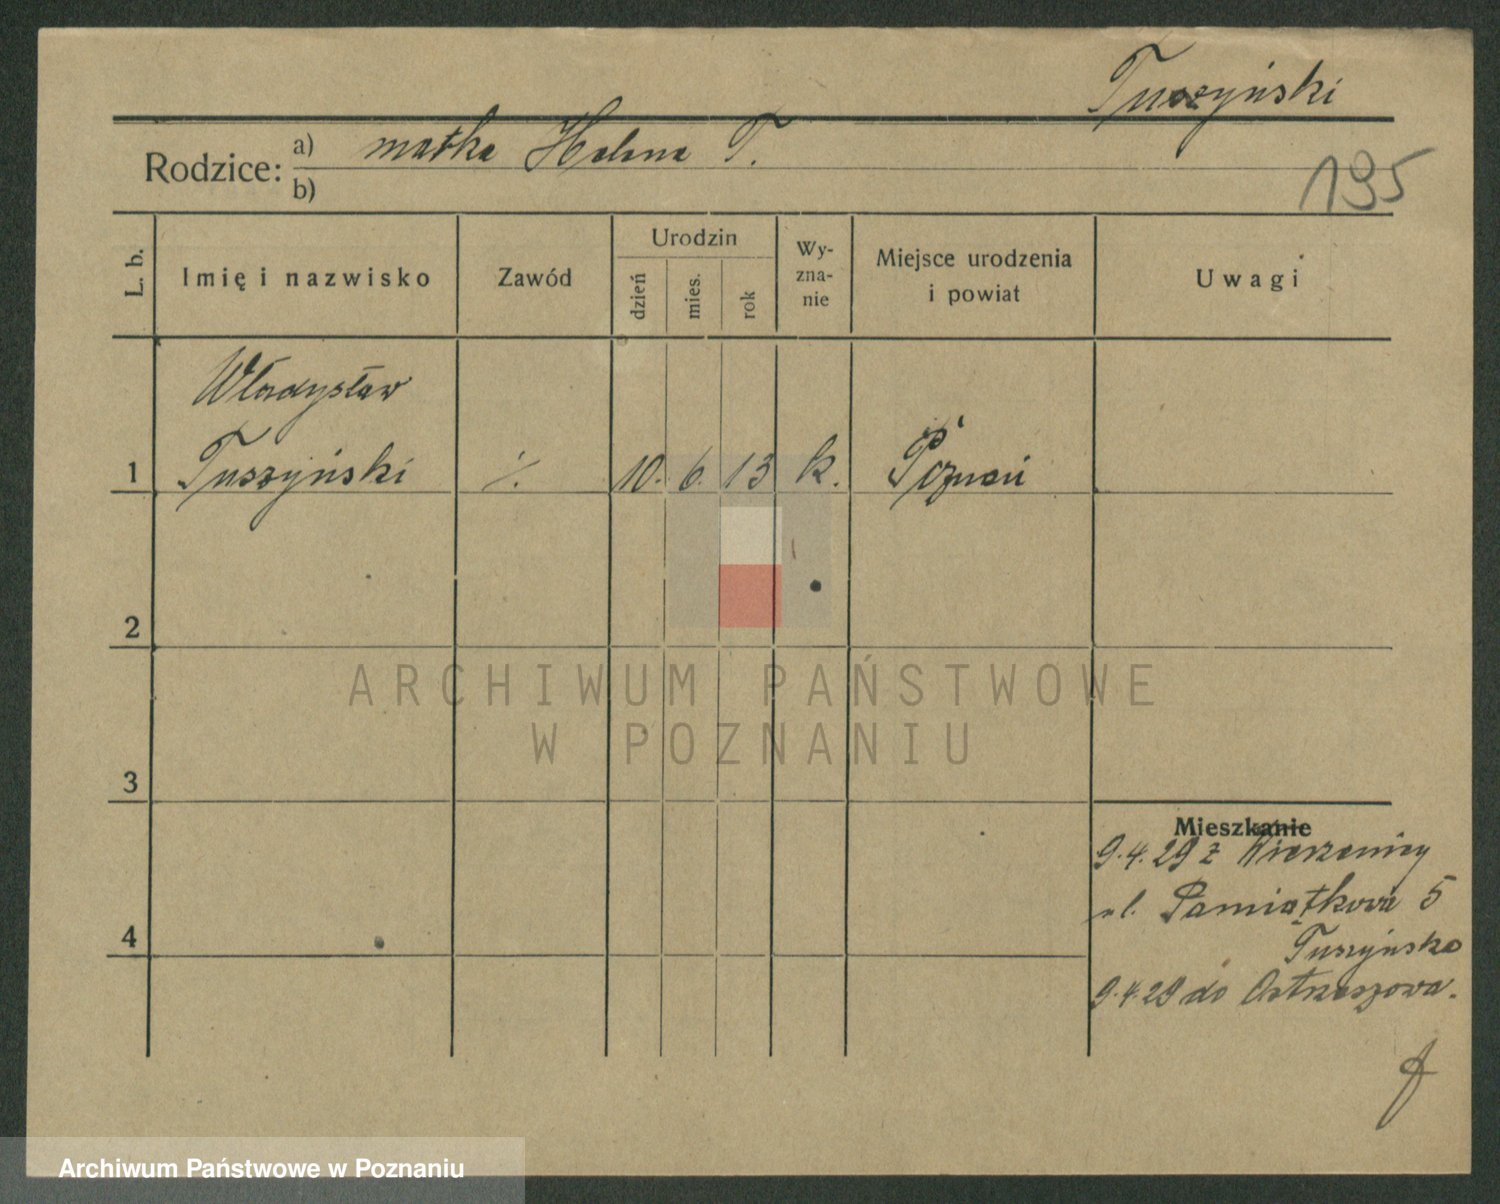 Tuszyński
Rodzice: a) matka Helena T.
b)
195
L. b.
Imię i nazwisko
Zawód
Urodzin
dzień
mies.
rok
Wy-
zna-
nie
Miejsce urodzenia
i powiat
Uwagi
Władysław
1 Tuszyński ·/. 10. 6. 13 k. Poznań
2
ARCHIWUM PAŃSTWOWE
W POZNANIU
3
Mieszkanie
9.4.29 z Wierzenicy
ul. Pamiątkowa 5
4
Tuszyńska
9.4.29 do Ostrzeszowa.
Archiwum Państwowe w Poznaniu